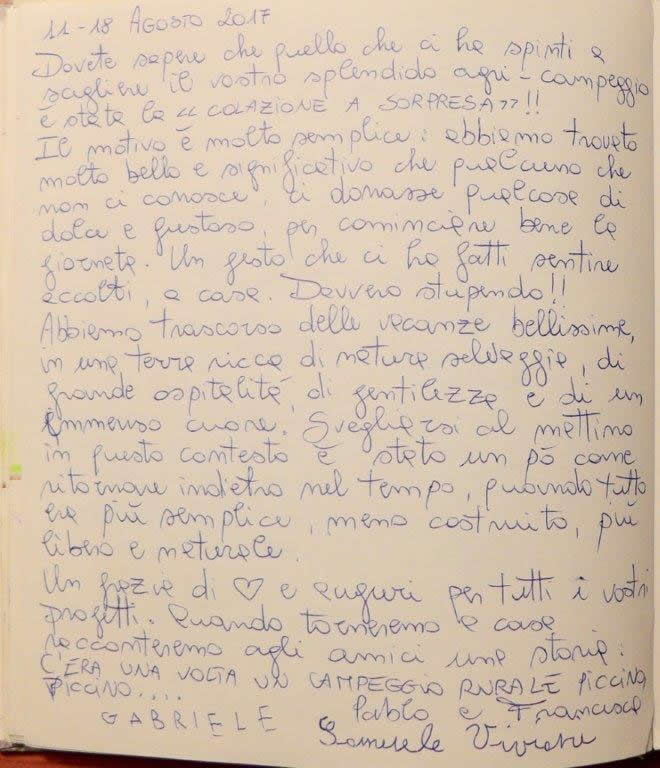 11-18 AGOSTO 2017
Dovete sapere che quello che ci ha spinti a
scegliere il vostro splendido agri-campeggio
è stata la << COLAZIONE A SORPRESA >>!!
Il motivo è molto semplice: abbiamo trovato
molto bello e significativo che qualcuno che
non ci conosce, ci donasse qualcosa di
dolce e gustoso, per cominciare bene la
giornata. Un gesto che ci ha fatti sentire
accolti, a casa. Davvero stupendo!!
Abbiamo trascorso delle vacanze bellissime,
in una terra ricca di natura selvaggia, di
grande ospitalità, di gentilezza e di un
immenso cuore. Svegliarsi al mattino
in questo contesto è stato un pò come
ritornare indietro nel tempo, quando tutto
era più semplice, meno costruito, più
libero e naturale.
Un grazie di ♡ e auguri per tutti i vostri
progetti. Quando torneremo a casa
racconteremo agli amici una storia:
C'ERA UNA VOLTA UN CAMPEGGIO RURALE PICCINO
PICCINO....
Pablo e Francesca
GABRIELE
Samuele Viviane